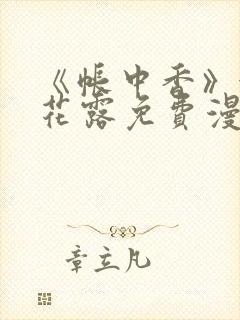 《帐中香》
花露免费漫
章立凡